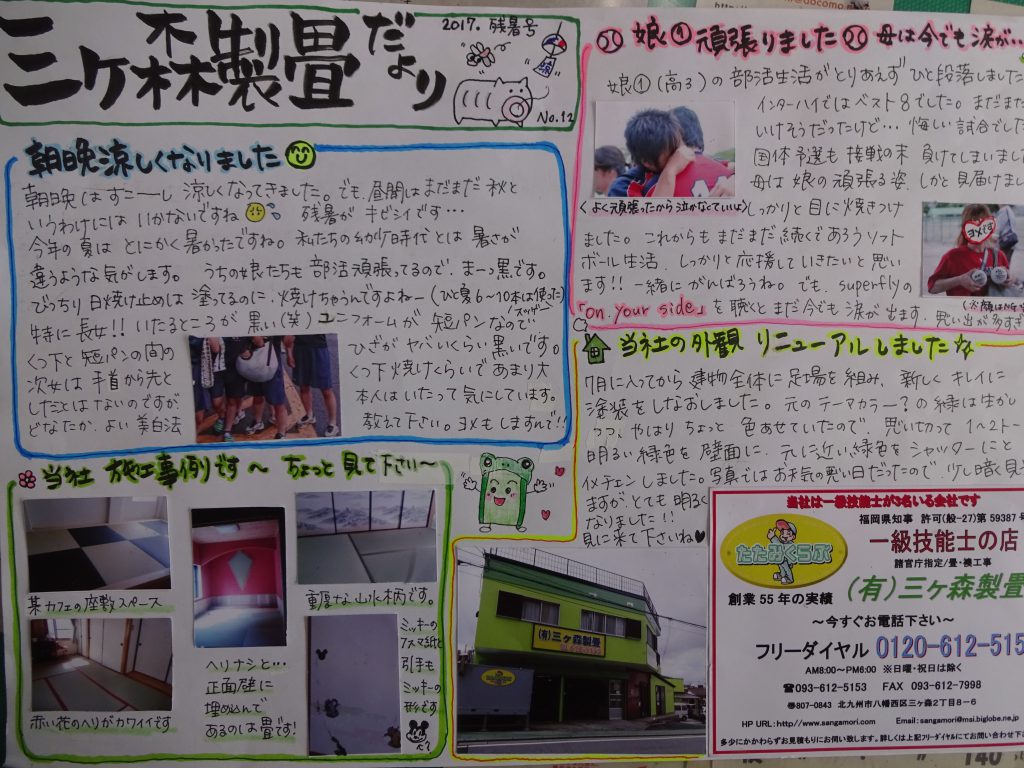 三ケ森製畳だより
2017. 残暑号
No.12
朝晩涼しくなりました
朝晩はすこーーし涼しくなってきました。でも、昼間はまだまだ秋と
いうわけにはいかないですね 残暑がキビシイです…
今年の夏はとにかく暑かったですね。私たちの幼少時代とは暑さが
違うような気がします。 うちの娘たちも部活頑張ってるので、まーっ黒です。
でっちり日焼け止めは塗ってるのに、焼けちゃうんですよねー(ひと夏6〜10本は使った)
スッゲー
特に長女!! いたるところが黒い(笑) ユニフォームが短パンなので
くつ下と短パンの間の
ひざがヤバいくらい黒いです。
次女は手首から先と
くつ下焼けくらいであまり大
したことはないのですが、
本人はいたって気にしています。
どなたか、よい美白法
教えて下さい。ヨメもしますんで!!
当社施工事例です〜 ちょっと見て下さい〜
某カフェの座敷スペース
赤い花のヘリがカワイイです
ヘリナシと…
正面壁に
埋め込んで
あるのは畳です!
重厚な山水柄です。
ミッキーの
フスマ紙と
引手も
ミッキーの
形です
娘① 頑張りました 母は今でも涙が‥
娘①(高3)の部活生活がとりあえずひと段落しました
インターハイではベスト8でした。まだまだ
いけそうだったけど… 悔しい試合でした
国体予選も接戦の末 負けてしまいまし
母は娘の頑張る姿、しかと見届けまし
<よく頑張ったから泣かなくていいよ>
しっかりと目に焼きつけ
ました。これからもまだまだ続くであろうソフト
ボール生活、しっかりと応援していきたいと思い
ます!! 一緒にがんばろうね。でも、superflyの
「on your side」を聴くとまだ今でも涙が出ます。思い出が多すぎ
ヨメです
当社の外観 リニューアルしました
7月に入ってから建物全体に足場を組み、新しくキレイに
塗装をしなおしました。元のテーマカラー?の緑は生かし
つつ、やはりちょっと色あせていたので、思い切って1〜2トー
明るい緑色を壁面に、元に近い緑色をシャッターにと
イメチェンしました。写真ではお天気の悪い日だったので、少し暗く見
ますが、とても明るく
なりました!!
見に来て下さいね
(有)三ヶ森製畳
当社は一級技能士が3名いる会社です
福岡県知事 許可(般-27)第59387号
たたみくらぶ
一級技能士の店
諸官庁指定/畳・襖工事
創業55年の実績
(有)三ヶ森製畳
〜今すぐお電話下さい〜
フリーダイヤル 0120-612-515
AM8:00〜PM6:00 ※日曜・祝日は除く
☎093-612-5153 FAX 093-612-7998
〒807-0843 北九州市八幡西区三ヶ森2丁目8-6
HP URL:http://www.sangamori.com Email:sangamori@msi.biglobe.ne.jp
多少にかかわらずお見積もりにお伺い致します。詳しくは上記フリーダイヤルにてお問い合わせ下
140